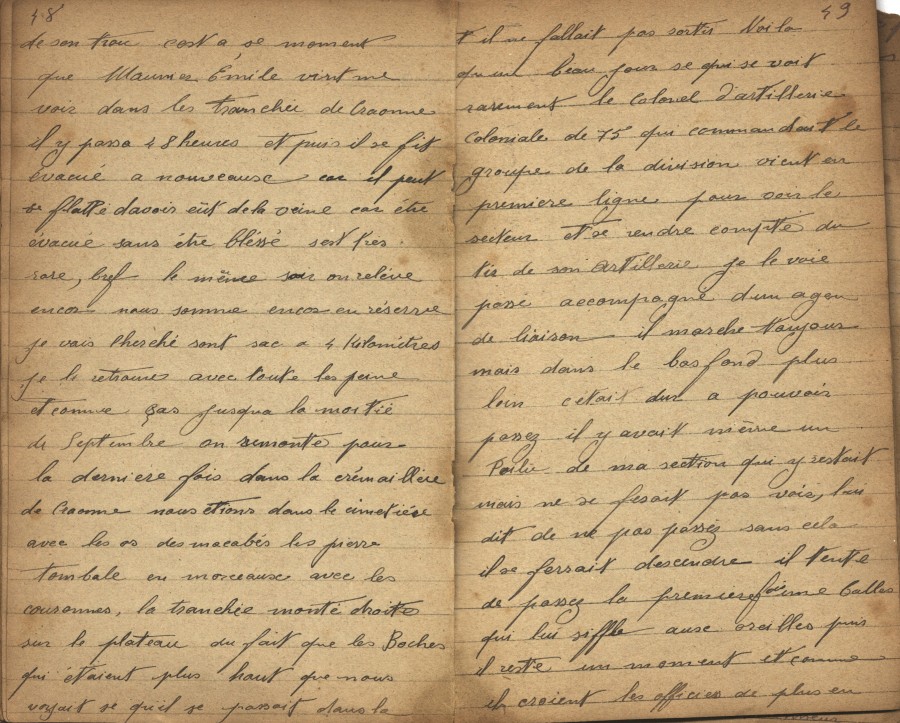 48
de son trou cest a se moment
que Maunier Émile vint me
voir dans les tranchée de Craonne
il y passa 48 heures et puis il se fit
évacué a nouveause car il peut
se flatté davoir eût de la veine car étre
évacué sans étre bléssé sest tres
rare, bref le même soir on relève
encor nous somme encor en réserve
je vais cherché sont sac a 4 Kilomètres
je le retrouve avec toute les peine
et comme ças jusqua la moitié
de Septembre on remonte pour
la derniere fois dans la crémaillère
de Craonne nous étions dans le cimetiére
avec les os des macabés les pierre
tombale en morceause avec les
couronnes, la tranchée monté droite
sur le plateau du fait que les Boches
qui étaient plus haut que nous
voyait se qu'il se passait dans la
49
t il ne fallait pas sortir Voila
qu un beau jour se qui se voit
rarement le Colonel d'artillerie
Coloniale de 75 qui commandait le
groupe de la division vient en
premiere ligne pour voir le
secteur et se rendre compte du
tir de son artillerie je le voie
passé accompagné d'un agen
de liaison il marche toujour
mais dans le bas fond plus
loin cétait dur a pouvoir
passez il y avait même un
Poilu de ma section qui y restait
mais ne se fesait pas voir, lui
dit de ne pas passéz sans cela
il se ferrait descendre il tente
de passez la premiere fois une balles
qui lui siffle ause oreilles puis
il reste un moment et comme
il croient les officier de plus en